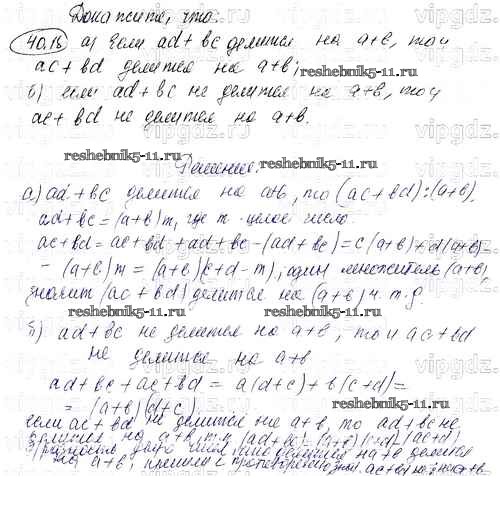 Докажите, что:
40.16 а) Если ad + bc делится на a+b, то и
ac + bd делится на a+b;
reshebnik5-11.ru
б) если ad + bc не делится на a+b, то и
ac + bd не делится на a+b.
reshebnik5-11.ru
Решение.
а) ad + bc делится на a+b, то (ac + bd) ⋮ (a+b),
ad + bc = (a+b) m, где m - целое число.
ac + bd = ac + bd + ad + bc - (ad + bc) = c(a+b) + d(a+b) -
- (a+b) m = (a+b)(c+d-m), один множитель (a+b),
reshebnik5-11.ru
значит (ac + bd) делится на (a+b) ч.т.д.
б) ad + bc не делится на a+b, то и ac + bd
не делится на a+b
ad + bc + ac + bd = a(d+c) + b(c+d) =
= (a+b)(d+c).
reshebnik5-11.ru
если ac + bd не делится на a+b, то ad + bc не
делится на a+b, т.к. (ad + bc) = (a+b)(c+d) - (ac+bd)
разность двух на a+b делится
на a+b, пришли к противоречию ac+bd не на a+b.
vipgdz.ru